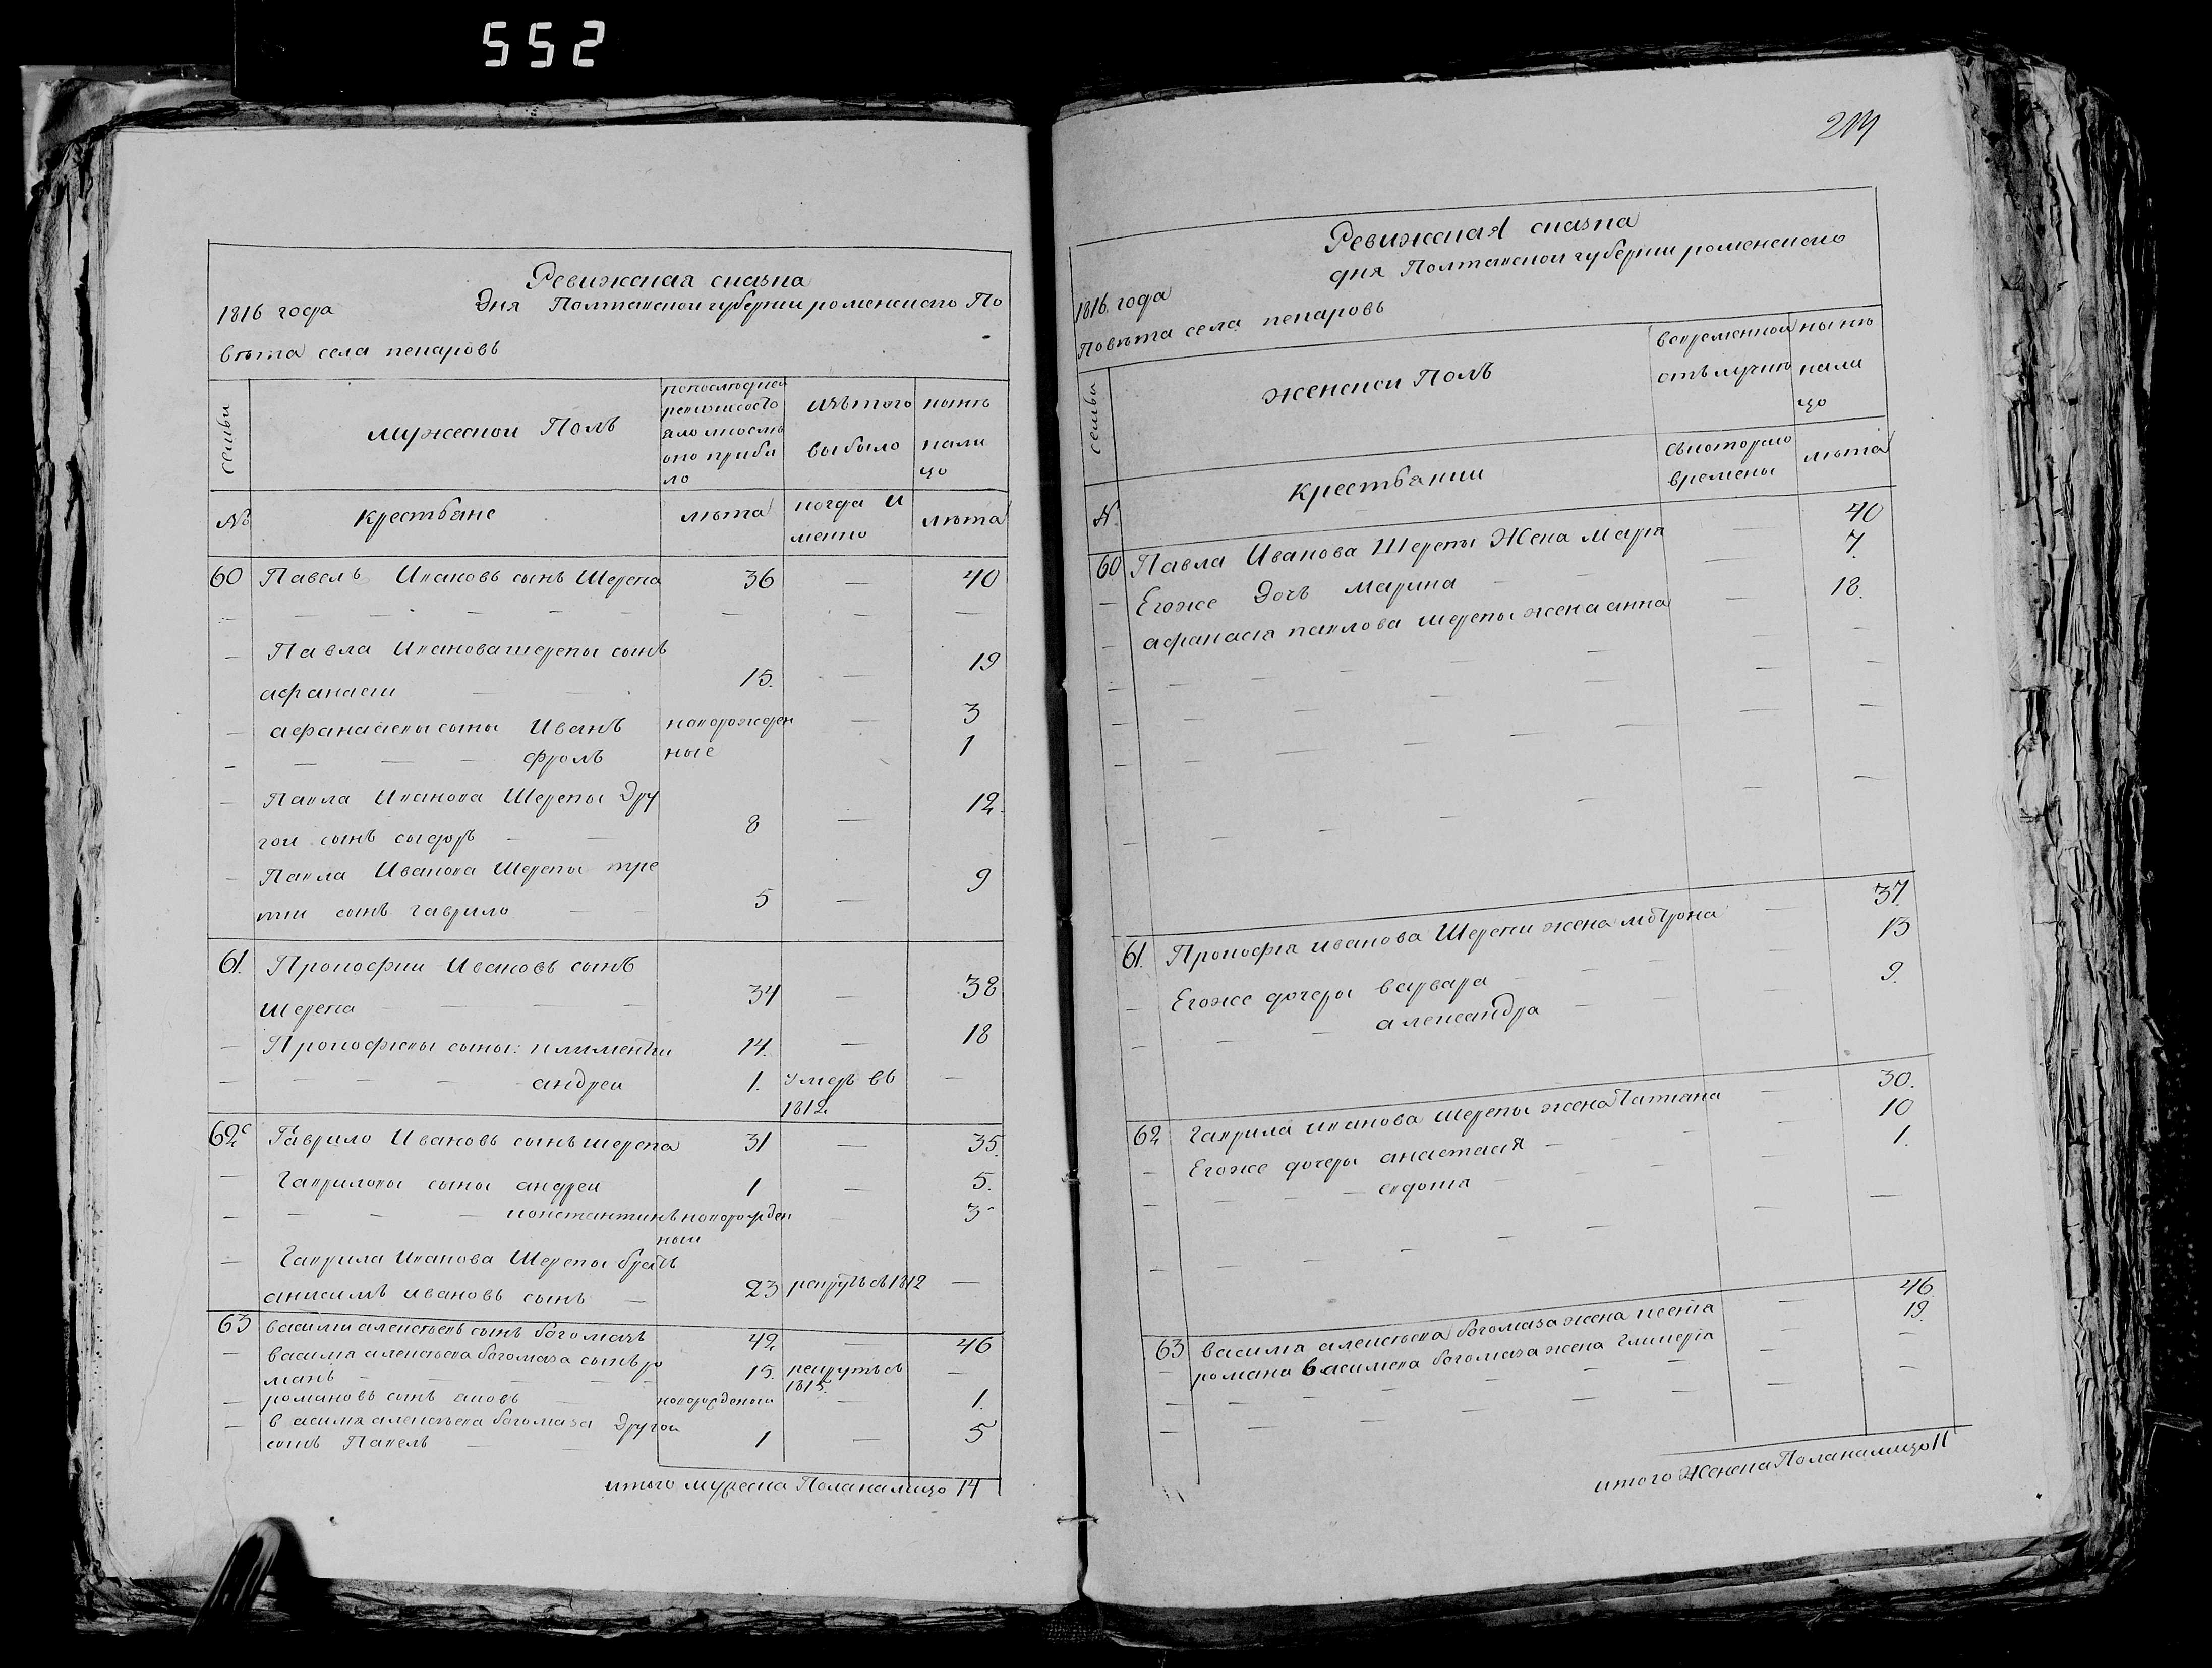 552
Ревижская сказка
1816 года Дня Полтавской губернии роменского По
вѣта села пекаровъ
семьи
мужеской Полъ
попослѣдней
ревизии состо
яло и послѣ
оно прибы
ло
изътого
выбыло
нынѣ
нали
цо
№
крестьяне
лѣта
когда и
менно
лѣта
60 Павелъ Ивановъ сынъ Шерепа 36 — 40
Павла Иванова шерепы сынъ
афанасии 15. — 19
афанасиевы сыны Иванъ новорожден — 3
фролъ ные 1
Павла Иванова Шерепы Дру
гои сынъ сыдоръ 8 — 12.
Павла Иванова Шерепы тре
тии сынъ гаврило 5 — 9
61. Прокофии Ивановъ сынъ
шерепа 34 — 38
Прокофиевы сыны: климентии 14. — 18
андреи 1. умеръ въ —
1812.
62 Гаврило Ивановъ сынъ шерепа 31 — 35.
Гавриловы сыны андреи 1 — 5.
константинъ новорожден 3
ныи
Гаврила Иванова Шерепы братъ
анисимъ ивановъ сынъ 23 рекрутъ въ 1812 —
63 василии алексѣевъ сынъ богомазъ 42 — 46
василия алексѣева богомаза сынъ ро
манъ 15. рекрутъ въ —
1815.
романовъ сынъ яковъ новорожденыи — 1.
василия алексѣева богомаза Другои
сынъ Павелъ 1 — 5
итого мужеска Пола налицо 14
Ревижская сказка
1816, года дня Полтавской губернии роменскаго
Повѣта села пекаровъ
семьи
женский Полъ
вовременной
отълучкѣ
нынѣ
нали
цо
N.
крестьянки
съкоторого
времены
лѣта
60 Павла Иванова Шерепы Жена Мария — 40
Егоже Дочь марина — 7.
афанасия павлова шерепы жена анна — 18.
61. Прокофия иванова Шерепи жена мотрона — 37.
Егоже дочеры варвара 13
александра 9.
62 Гаврила иванова шерепы жена Татиана — 30.
Егоже дочеры анастасия 10
евдокия 1.
63 василия алексѣева богомаза жена 46
романа василева богомаза жена гликерия 19.
итого Женска Пола налицо 11